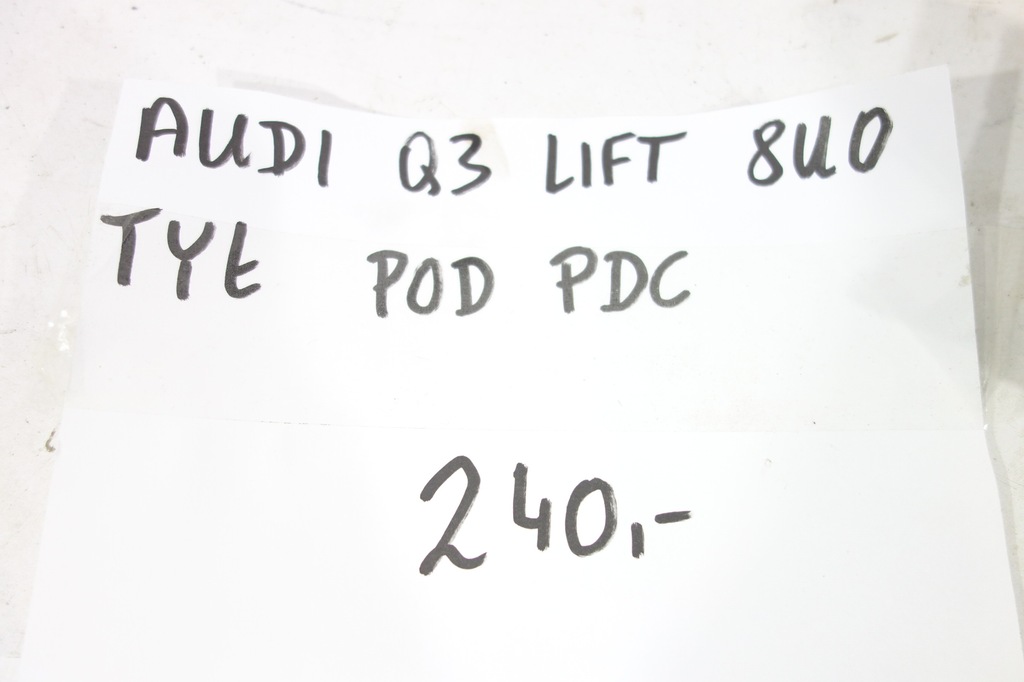 AUDI Q3 LIFT 8U0
TYŁ POD PDC
240,-